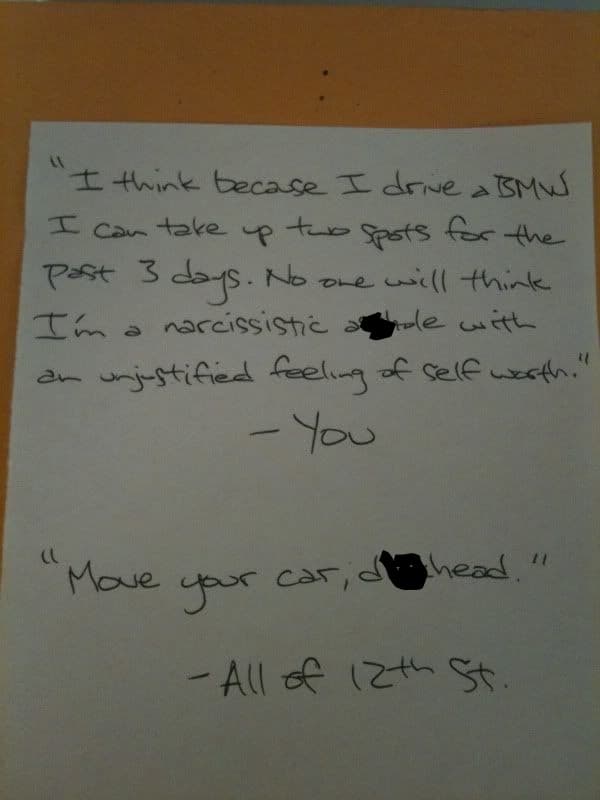 "I think because I drive a BMW
I can take up two spots for the
past 3 days. No one will think
I'm a narcissistic with
an unjustified feeling of self worth."
- You
"Move your car, head."
- All of 12th St.